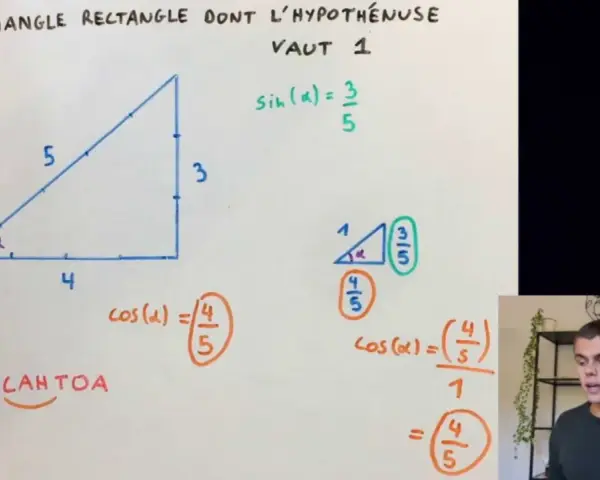 ANGLE RECTANGLE DONT L'HYPOTHÉNUSE
VAUT 1
sin(α) = 3/5
5
3
4
1
α
3/5
4/5
cos(α) = 4/5
cos(α) = (4/5)/1
= 4/5
CAHTOA